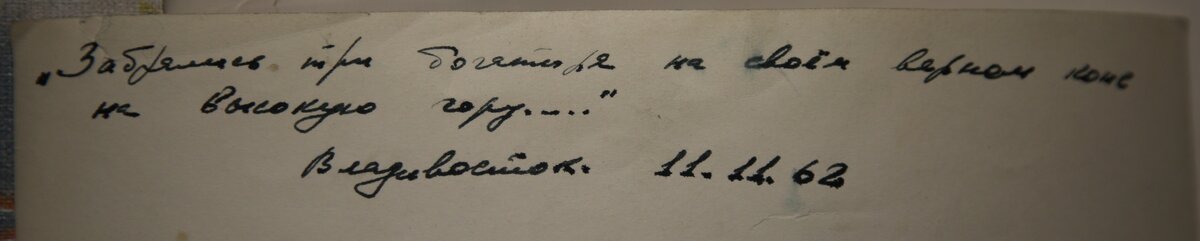 „Забрались три богатыря на своём верном коне
на высокую гору....."
Владивосток. 11.11.62